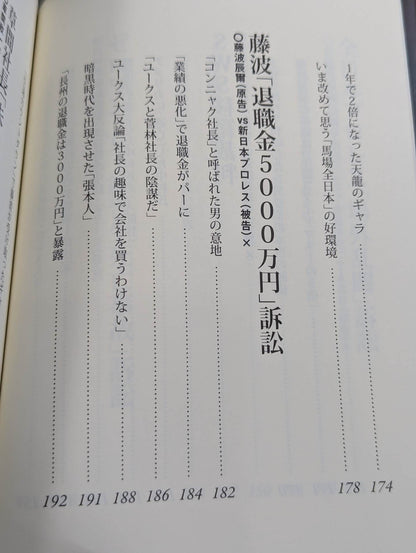 1年で2倍になった天龍のギャラ 174
いま改めて思う「馬場全日本」の好環境 178
藤波「退職金5000万円」訴訟
○藤波辰爾(原告)vs新日本プロレス(被告)×
「コンニャク社長」と呼ばれた男の意地 182
「業績の悪化」で退職金がパーに 184
「ユークスと菅林社長の陰謀だ」 186
ユークス大反論「社長の趣味で会社を買うわけない」 188
暗黒時代を出現させた「張本人」 191
「長州の退職金は3000万円」と暴露 192